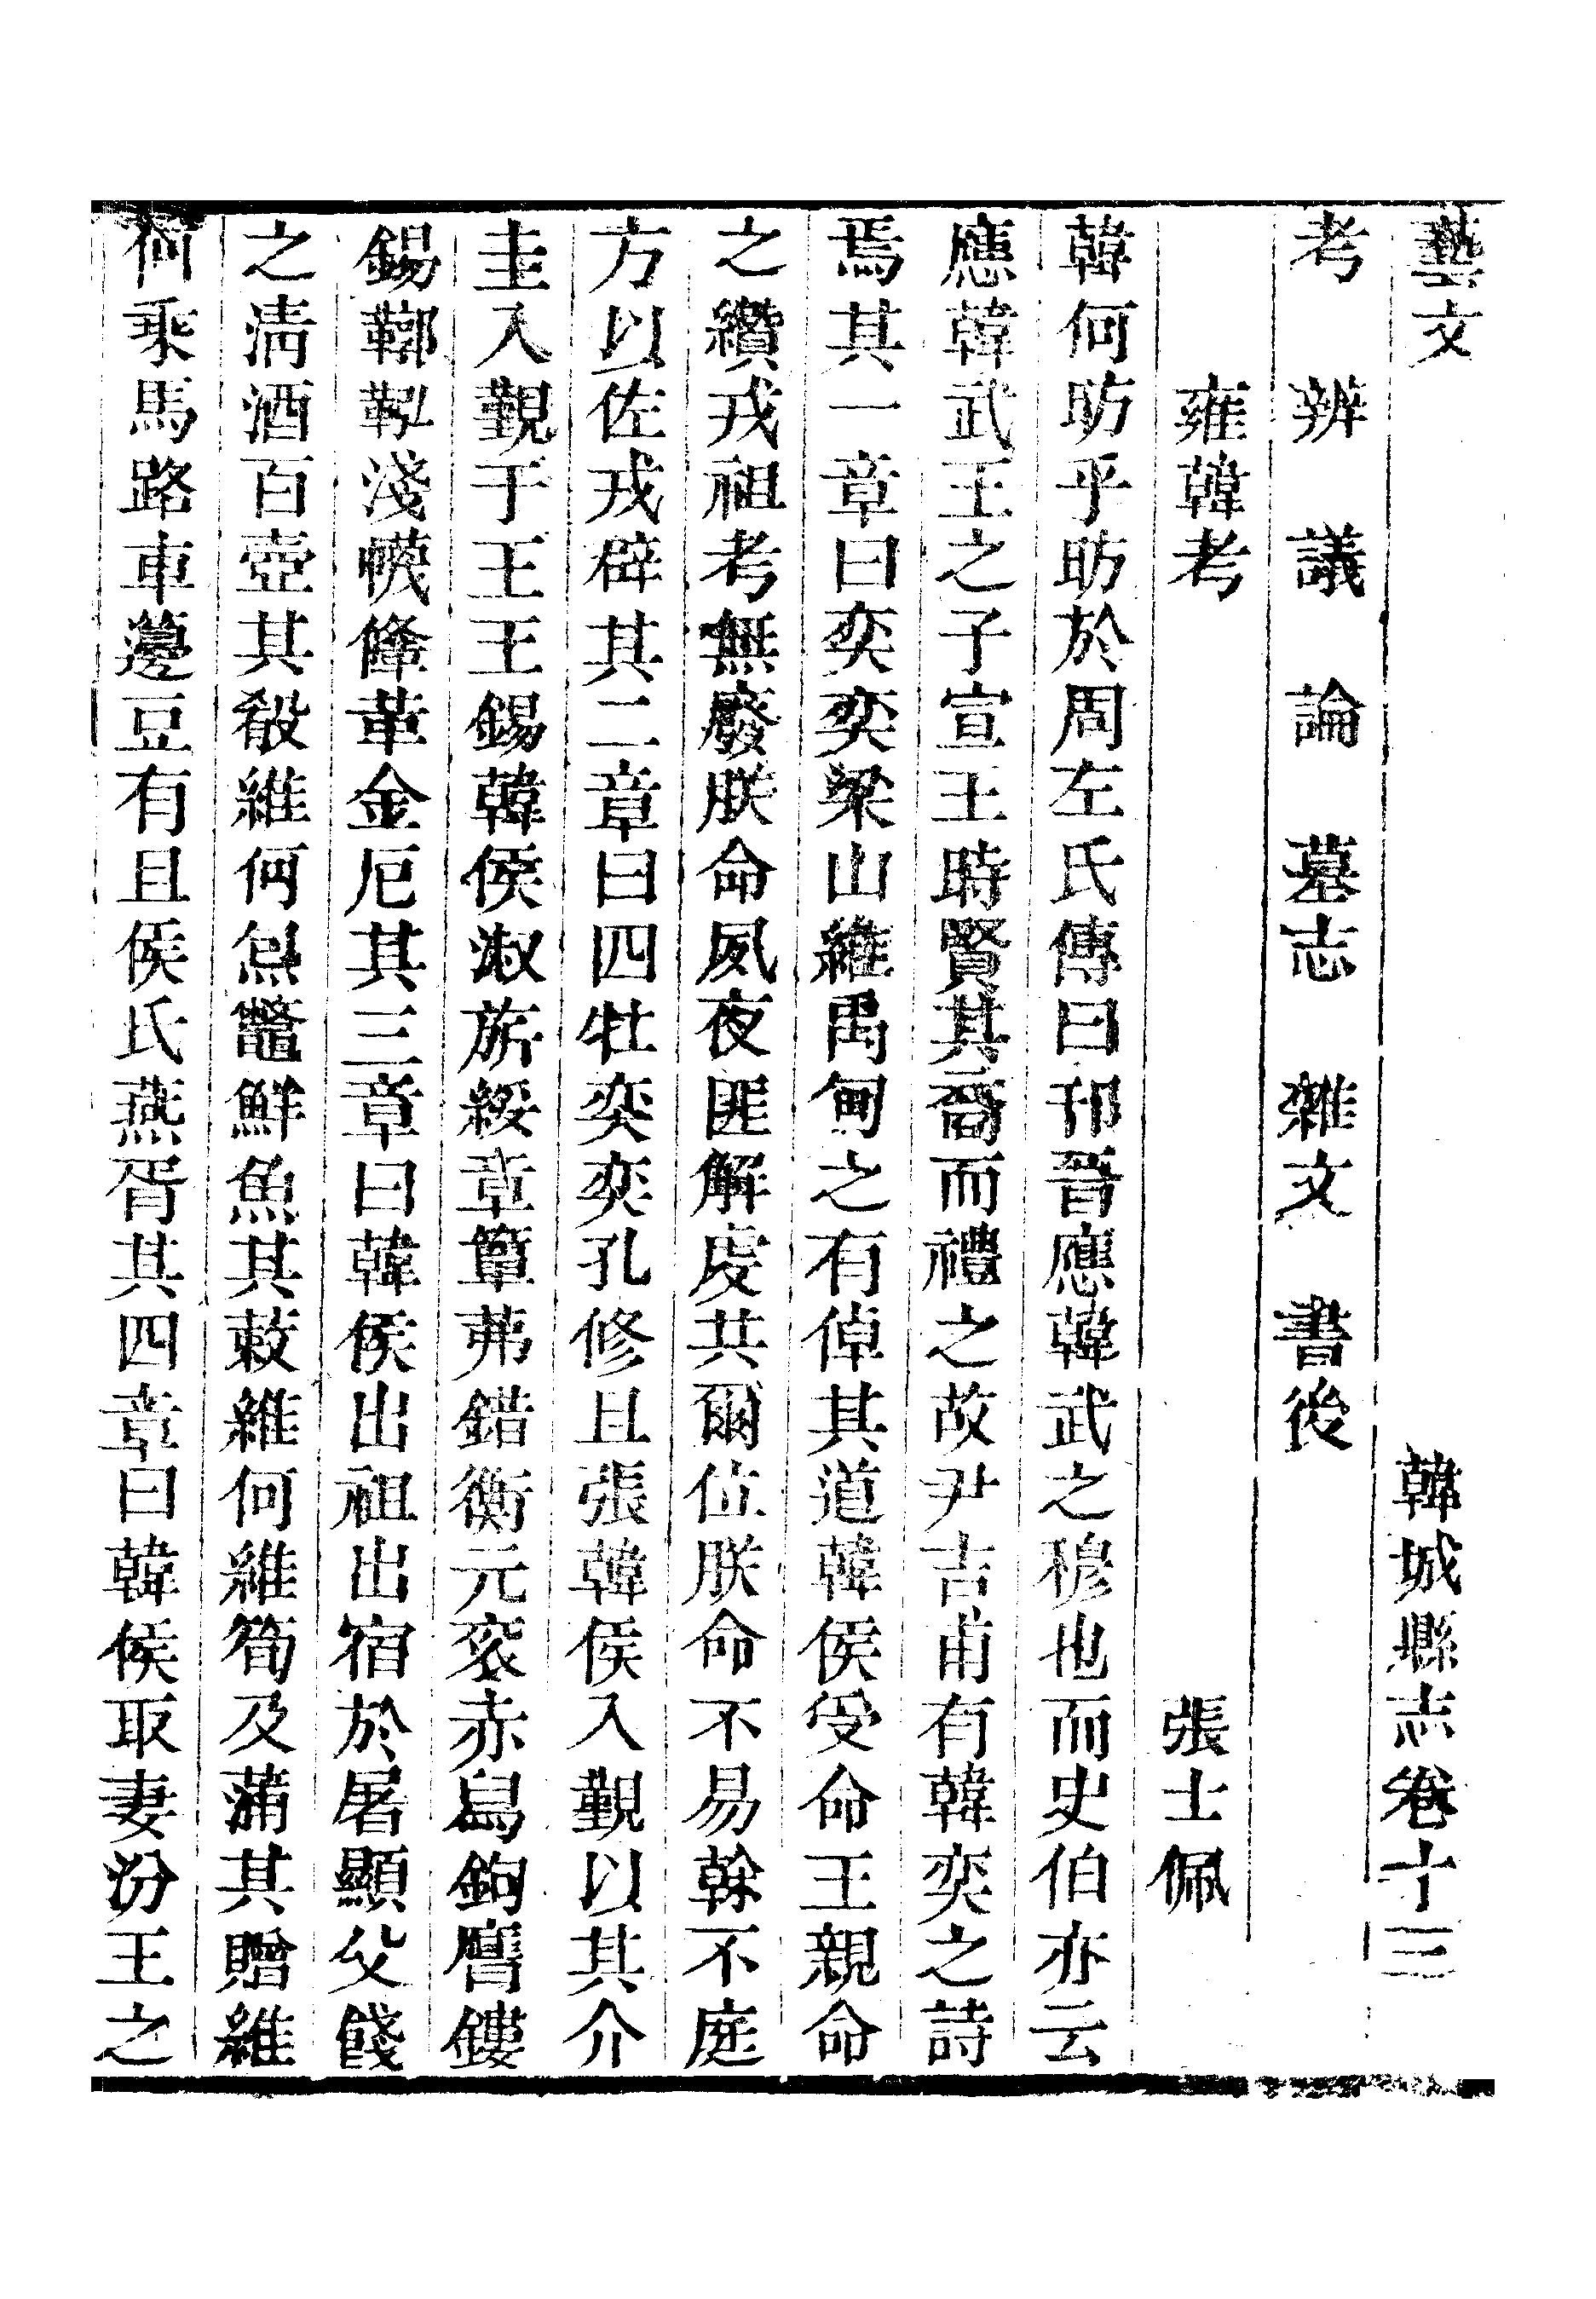 藝文 韓城縣志卷十三
考 辨 議 論 墓志 雜文 書後
雍韓考 張士佩
韓何昉乎昉於周左氏傳曰邘晉應韓武之穆也而史伯亦云
應韓武王之子宣王時賢其裔而禮之故尹吉甫有韓奕之詩
焉其一章曰奕奕梁山維禹甸之有倬其道韓侯受命王親命
之纘戎祖考無廢朕命夙夜匪解虔共爾位朕命不易榦不庭
方以佐戎辟其二章曰四牡奕奕孔修且張韓侯入覲以其介
圭入覲于王王錫韓侯淑旂綏章簟茀錯衡元袞赤舄鉤膺鏤
錫鞹鞃淺幭鞗革金厄其三章曰韓侯出祖出宿於屠顯父餞
之清酒百壺其殽維何炰鼈鮮魚其蔌維何維筍及蒲其贈維
何乘馬路車籩豆有且侯氏燕胥其四章曰韓侯取妻汾王之